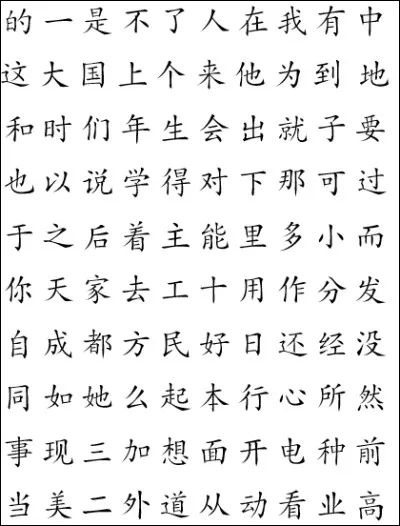 的一是不了人在我有中
这大国上个来他为到地
和时们年生会出就子要
也以说学得对下那可过
于之后着主能里多小而
你天家去工十用作分发
自成都方民好日还经没
同如她么起本行心所然
事现三加想面开电种前
当美二外道从动看业高